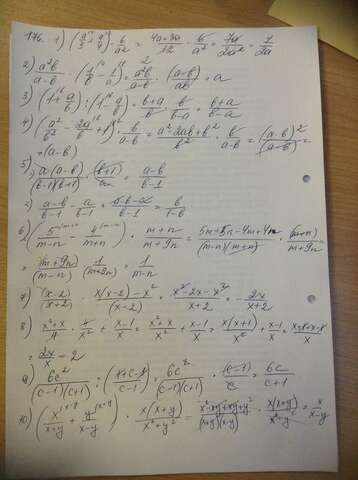 176. 1) (a/3 + a/4) · 6/a² = (4a+3a)/12 · 6/a² = 7a/2a² = 7/2a
2) a²b/(a-b) · (1/b - 1/a) = a²b/(a-b) · (a-b)/ab = a
3) (1 + a/b) : (1 - a/b) = (b+a)/b · b/(b-a) = (b+a)/(b-a)
4) (a²/b² - 2a/b + 1) · b/(a-b) = (a²-2ab+b²)/b² · b/(a-b) = (a-b)²/(a-b) =
= (a-b)
5) a(a-b)/(b-1)(b+1) · (b+1)/a = (a-b)/(b-1)
2) (a-b)/(b-1) - a/(b-1) = (a-b-a)/(b-1) = b/(1-b)
6) (5/(m-n) - 4/(m+n)) · (m+n)/(m+9n) = (5m+5n-4m+4n)/(m-n)(m+n) · (m+n)/(m+9n)
= (m+9n)/(m-n) · 1/(m+9n) = 1/(m-n)
7) (x-2)/(x+2) · (x(x-2)-x²)/(x-2) = (x²-2x-x²)/(x+2) = -2x/(x+2)
8) (x²+x)/4 · 4/x² + (x-1)/x = (x²+x)/x² + (x-1)/x = x(x+1)/x² + (x-1)/x = (x+1+x-1)/x
= 2x/x = 2
9) 6c²/(c-1)(c+1) : (1+c-1)/(c-1) = 6c²/(c-1)(c+1) · (c-1)/c = 6c/(c+1)
10) (x/(x+y) + y/(x-y)) · x(x+y)/(x²+y²) = (x²-xy+xy+y²)/(x+y)(x-y) · x(x+y)/(x²+y²) = x/(x-y)